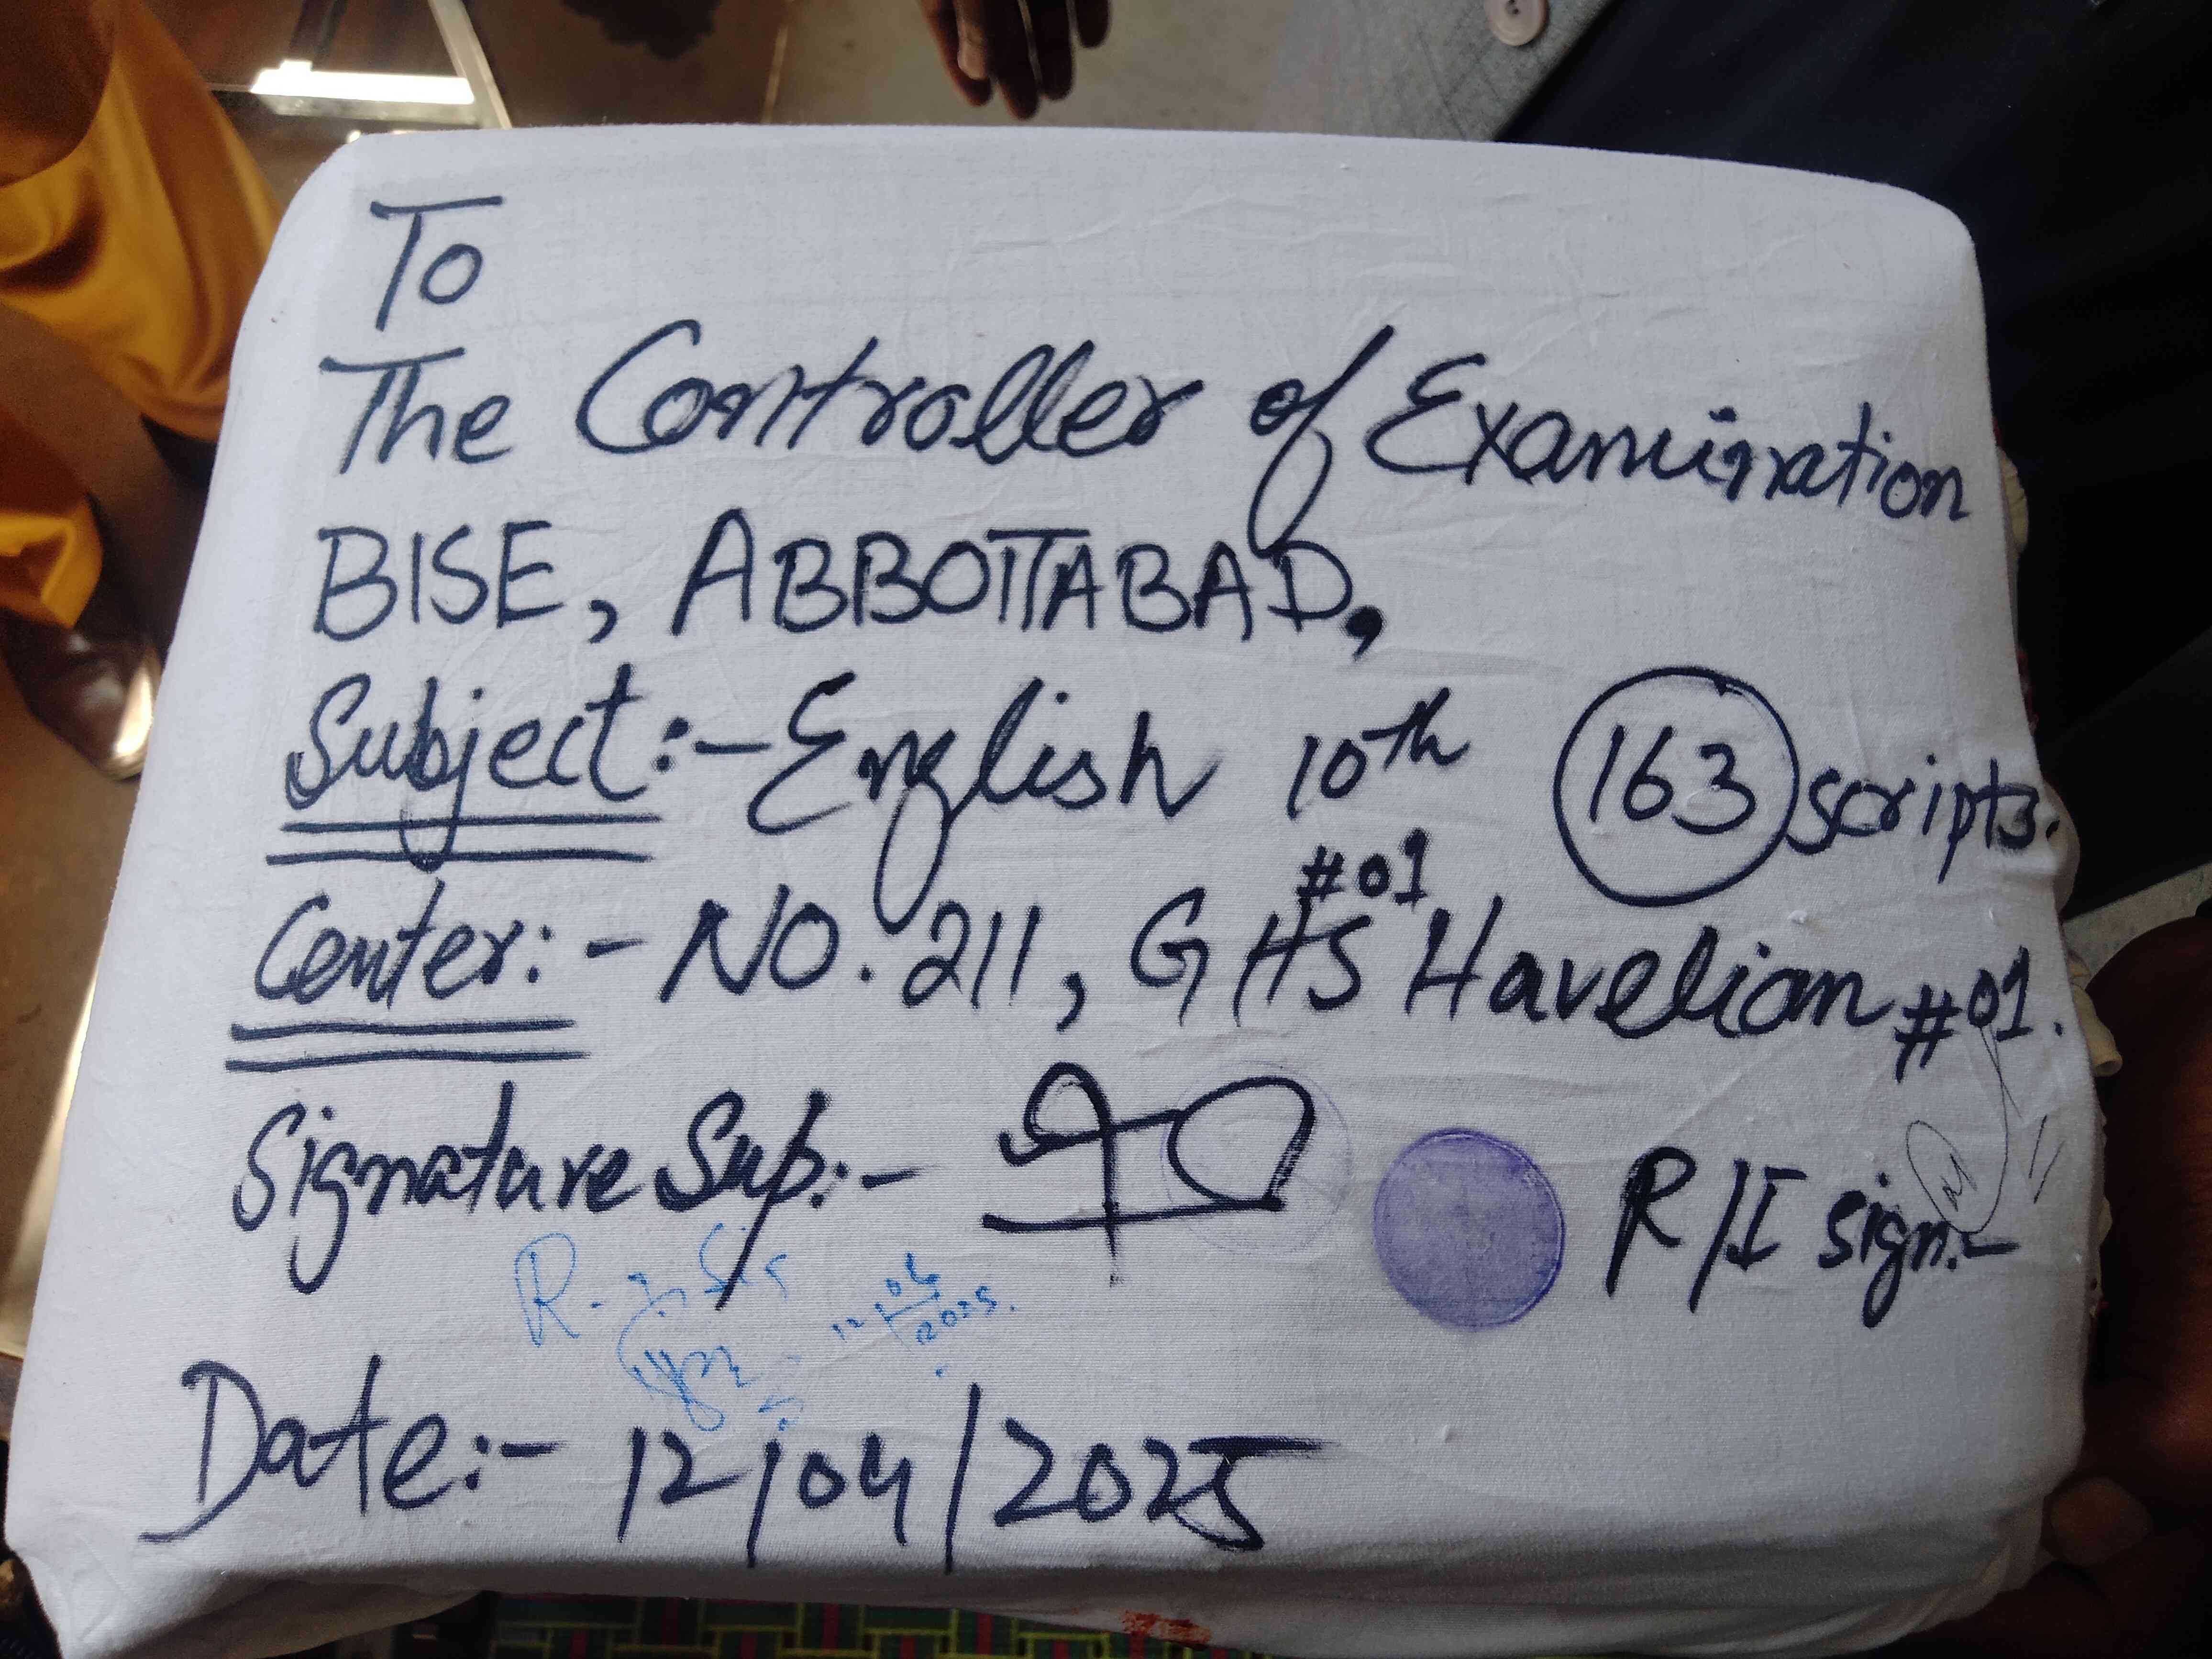 To
The Controller of Examination
BISE, ABBOTTABAD,
Subject:- English 10th 163 scripts.
#01
Center:- NO. 211, GHS Havelian #01.
Signature Sup:- R/I sign:-
12/04/2025.
Date:- 12/04/2025